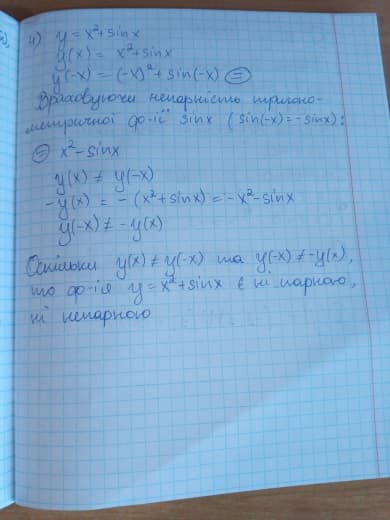 4) y = x²+sinx
y(x) = x²+sinx
y(-x) = (-x)²+sin(-x) =
Враховуючи непарність тригоно-
метричної ф-ії sinx (sin(-x)=-sinx):
= x²-sinx
y(x) ≠ y(-x)
-y(x) = -(x²+sinx) = -x²-sinx
y(-x) ≠ -y(x)
Оскільки y(x)≠y(-x) та y(-x)≠-y(x),
то ф-ія y=x²+sinx є ні парною,
ні непарною